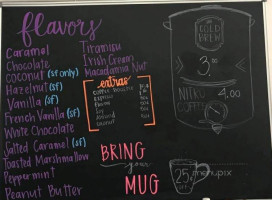 flavors
Caramel
Chocolate
Coconut (SF only)
Hazelnut (SF)
Vanilla (SF)
French Vanilla (SF)
White Chocolate
Salted Caramel (SF)
Toasted Marshmallow
Peppermint
Peanut Butter
Tiramisu
Irish Cream
Macadamia Nut
extras
BRING
your
MUG
COLD
BREW
3.00
NITRO
COFFEE
4.00
25¢
menupix